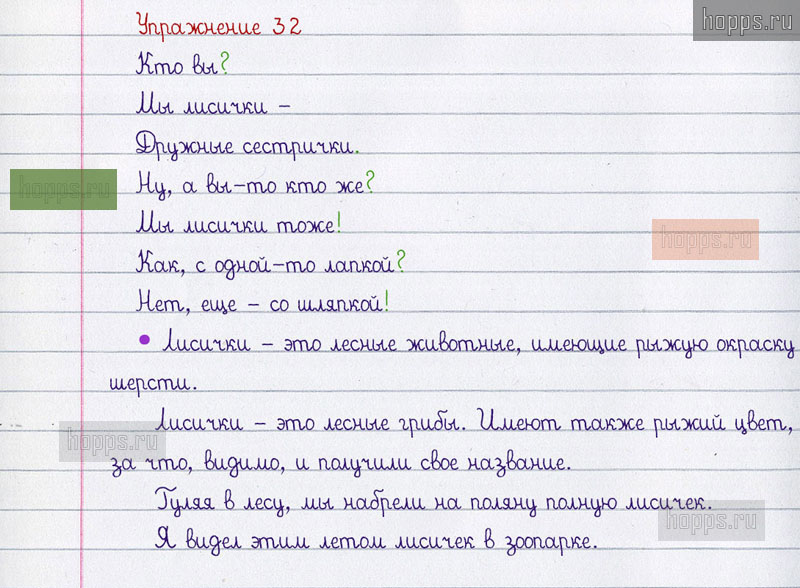 hopps.ru
Упражнение 32
Кто вы?
Мы лисички –
Дружные сестрички.
hopps.ru
Ну, а вы-то кто же?
Мы лисички тоже!
hopps.ru
Как, с одной-то лапкой?
Нет, еще – со шляпкой!
• Лисички – это лесные животные, имеющие рыжую окраску
шерсти.
Лисички – это лесные грибы. Имеют также рыжий цвет,
hopps.ru
за что, видимо, и получили свое название.
Гуляя в лесу, мы набрели на поляну полную лисичек.
hopps.ru
Я видел этим летом лисичек в зоопарке.